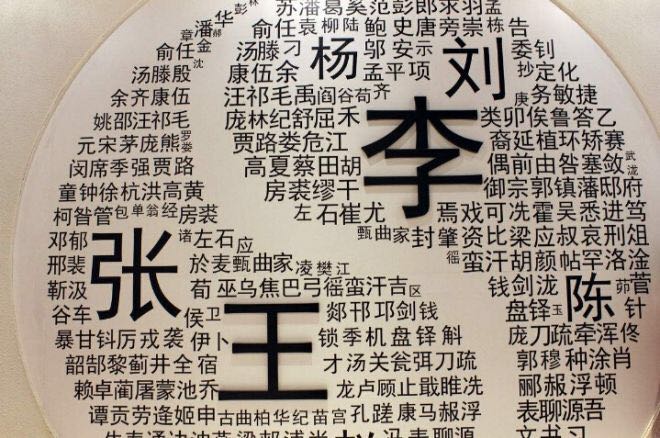 苏潘葛奚范彭郎求羽孟
彭林
潘华郝
俞任袁柳陆鲍史唐旁崇栋告
章金
俞任
沈
汤滕刁
杨
邬安示
刘
委钊
汤滕殷
康伍余
孟平项
抄定化
余齐康伍
汪祁毛禹阎谷荀齐
庚务敏捷
姚邵汪祁毛
庞林纪舒屈禾
李
类卯俟鲁答乙
元宋茅庞熊罗娄
贾路娄危江
裔延植环矫赛
闵席季强贾路
高夏蔡田胡
偶前由昝塞敛武泷
童钟徐杭洪高黄
房裘缪干
御宗郭镇藩邸府
柯昝管包单翁经房裘
左石崔尤
焉戏可冼霍吴悉进笃
邓郁
张
诸左石应
甄曲家封肇资比梁应叔哀刑俎
邢裴
於麦甄曲家凌樊江
瑶蛮汗胡颜帖罕洛淦
靳汲
荀巫乌焦巴弓徭蛮汗吉区
钱剑泷
陈
茆菅
谷车
侯卫
王
郯邗邛剑钱
盘铎玉
针
暴甘钭厉戎袭伊卜
锁季机盘铎斛
庞刀疏牵浑佟
韶郜黎蓟井全宿
才汤关瓮弭刀疏
郭穆种涂肖
赖卓蔺屠蒙池乔
龙卢顾止戢睢冼
郦郝浮顿
谭贡劳逄姬申古曲柏华纪苗宫孔蹉康马郝浮
表聊源吾
冯表聊源
文书习